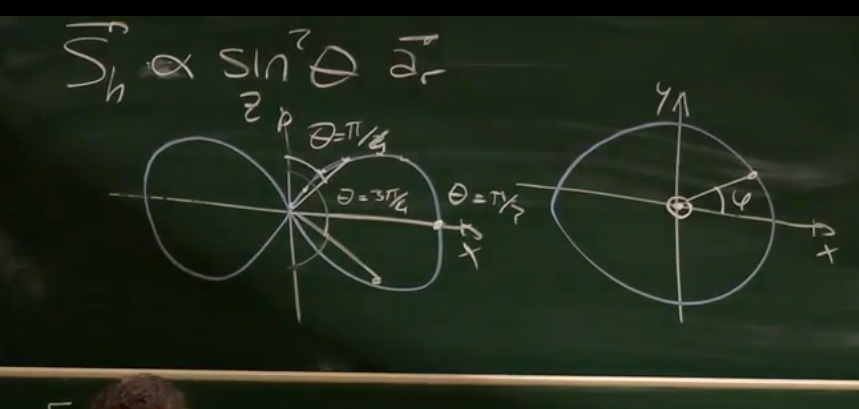 S⃗h ∝ sin²θ a⃗r
z
θ=π/4
θ=3π/4
θ=π/2
x
y
φ
x